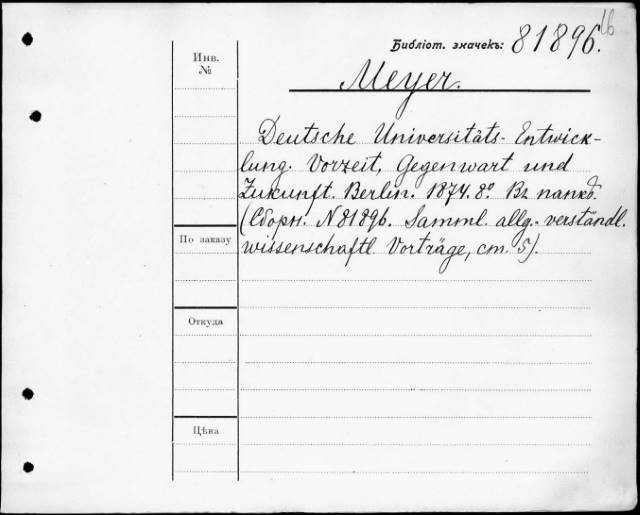 16
Библіот. значекъ: 81896.
Инв.
№
Meyer.
Deutsche Universitäts-Entwick-
lung. Vorzeit, Gegenwart und
Zukunft. Berlin. 1874. 8º. Въ папкѣ.
(Сборн. N 81896. Samml. allg.-verständl.
wissenschaftl. Vorträge, ст. 5).
По заказу
Откуда
Цѣна